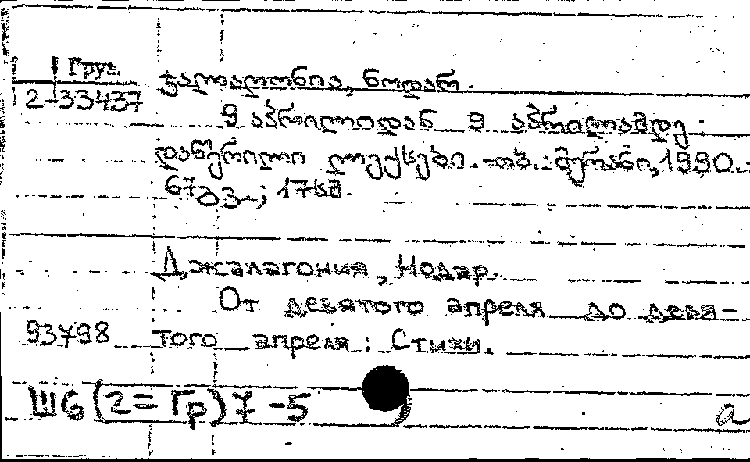 Груз.
2-33437
ჯალაღონია, ნოდარ.
9 აპრილიდან 9 აპრილამდე:
დაწერილი ლექსები. - თბ.: მერანი, 1990. -
67გვ.; 17სმ.
Джалагония, Нодар.
От девятого апреля до девя-
93798 того апреля: Стихи.
Ш6(2=Гр)7-5
а